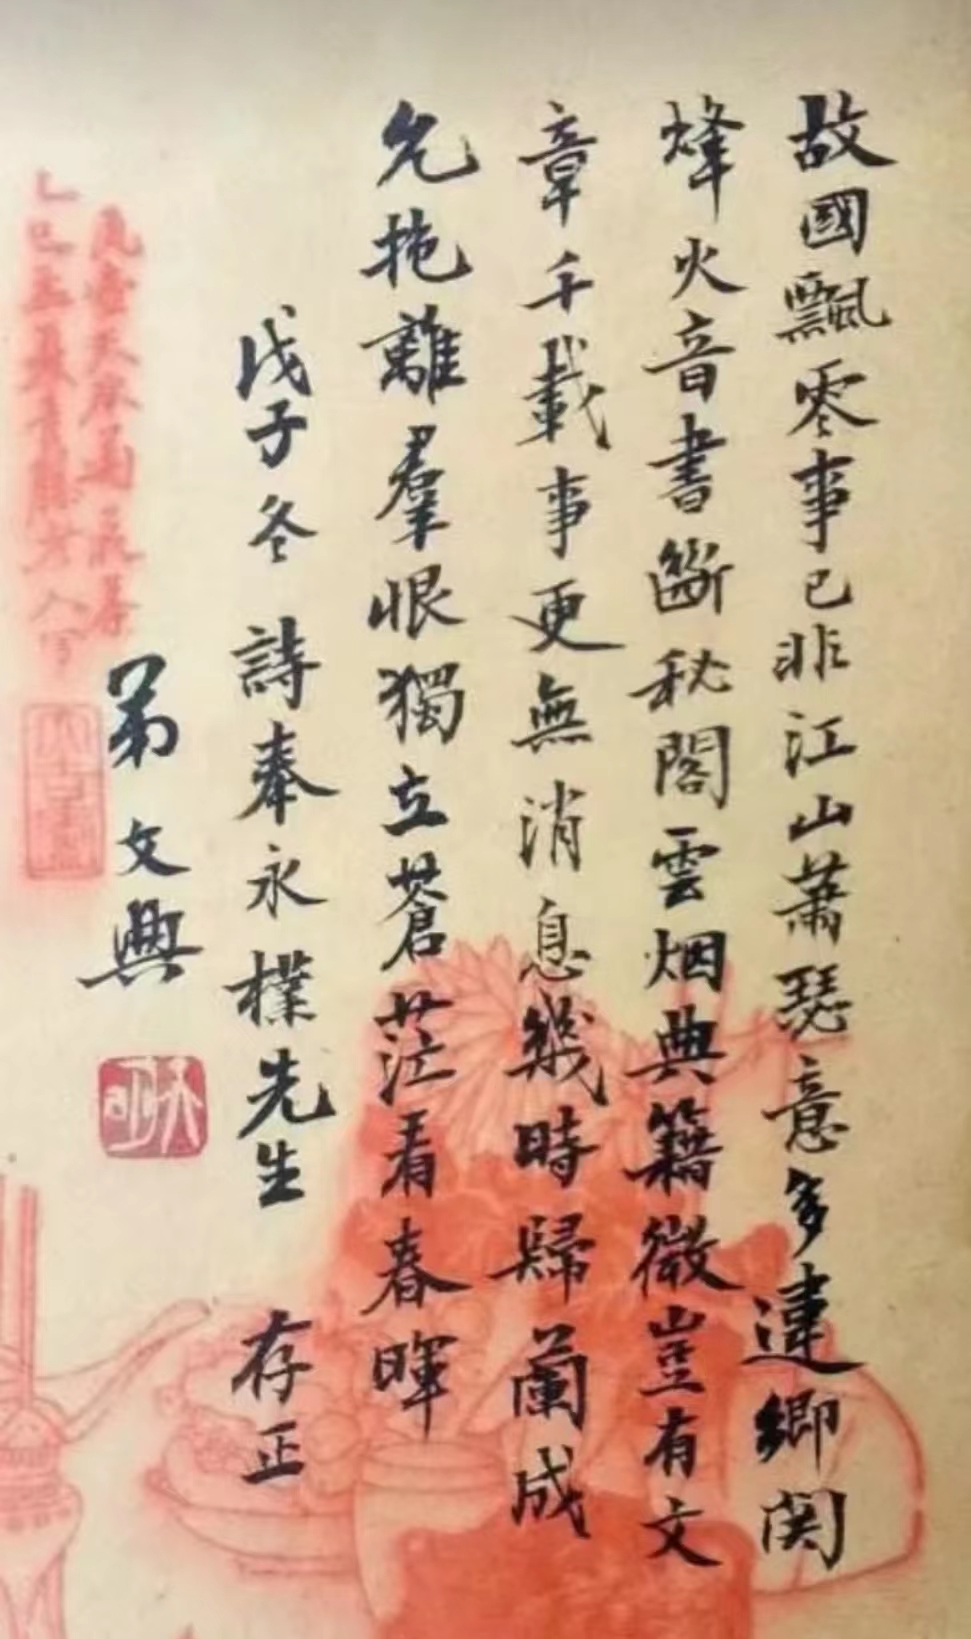 故國飄零事已非江山蕭瑟意多違鄉関
烽火音書斷秘閣雲烟典籍微豈有文
章千載事更無消息幾時歸蘭成
允抱離羣恨獨立蒼茫看春暉
戊子冬 詩奉永樸先生 存正
弟文興